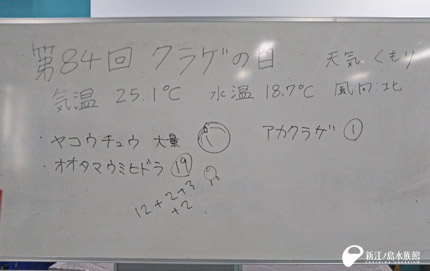 第84回 クラゲの日 天気 くもり
気温 25.1℃ 水温 18.7℃ 風向 北
・ヤコウチュウ 大量 アカクラゲ ①
・オオタマウミヒドラ ⑲
12+2+3
+2
新江ノ島水族館